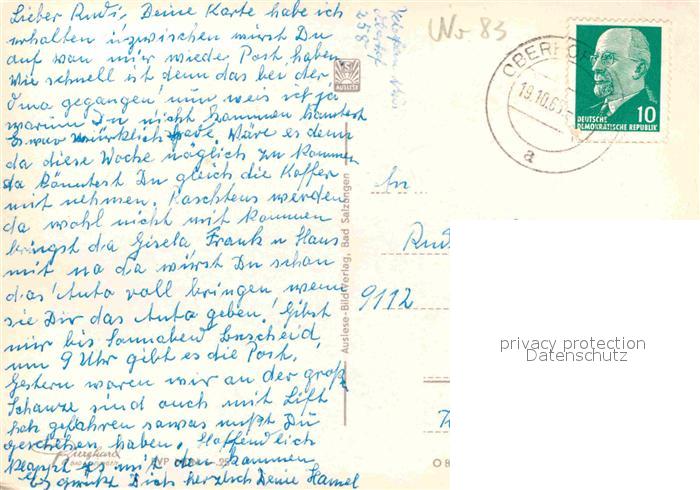 Lieber Rudi, Deine Karte habe ich
erhalten inzwischen wirst Du
auf von mir wieder Post haben
Wie schnell ist denn das bei der
Oma gegangen, nun weis ich ja
warum Du nicht kommen kontest
Es war würklich Wäre es denn
da diese Woche möglich zu kommen
da könntest Du gleich die Koffer
mit nehmen. werden
da wohl nicht mit kommen
bringst da Gisela Frank u Haus
mit na da würst Du schon
das Auto voll bringen, wenn
sie Dir das Auto geben! Gibst
mir bis Sonnabend Bescheid
um 9 Uhr gibt es die Post.
Gestern waren wir an der groß
Schanze sind auch mit Lift
hoch gefahren sowas mußt Du
gesehen haben. Hoffendlich
klappt es mit den kommen
Es grüßt Dich herzlich Deine
258
No 83
AUSLESE
Auslese-Bild-Verlag, Bad Salzungen
OBERHOF
19.10.65
a
10
DEUTSCHE
DEMOKRATISCHE REPUBLIK
An
Rudi
9112
privacy protection
Datenschutz